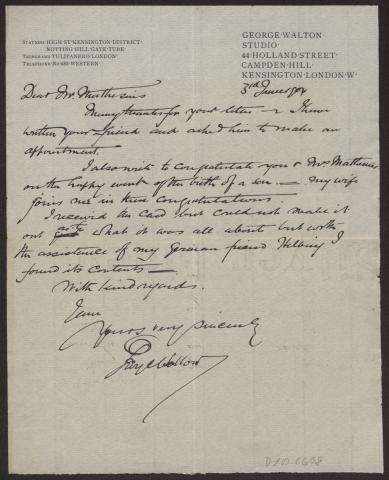 STATIONS HIGH·ST·KENSINGTON·DISTRICT·
NOTTING·HILL·GATE·TUBE·
TELEGRAMS TULIPANERO·LONDON·
TELEPHONE·No 480·WESTERN·
GEORGE·WALTON·
STUDIO·
44·HOLLAND·STREET·
CAMPDEN·HILL·
KENSINGTON·LONDON·W·
3rd June 1904
Dear Mr. Muthesius
Many thanks for your letter — I have
written your friend and asked him to make an
appointment.
I also write to congratulate you & Mrs Muthesius
on the happy event of the birth of a son — my wife
joins me in these congratulations.
I received the card but could not make it
out as to what it was all about but with
the assistance of my German friend Helbing I
found its contents —
With kind regards.
I am
Yours very sincerely
George Walton